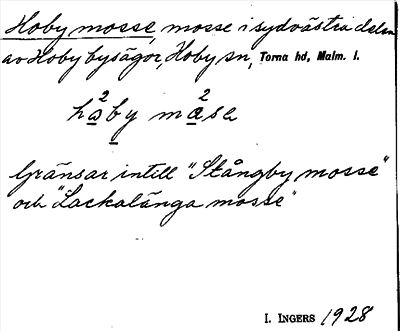 Hoby mosse, mosse i sydvästra delen
av Hoby bysägor, Hoby sn, Torna hd, Malm. l.
ho²by må²sa
Gränsar intill "Stångby mosse"
och "Lackalänga mosse"
I. INGERS 1928